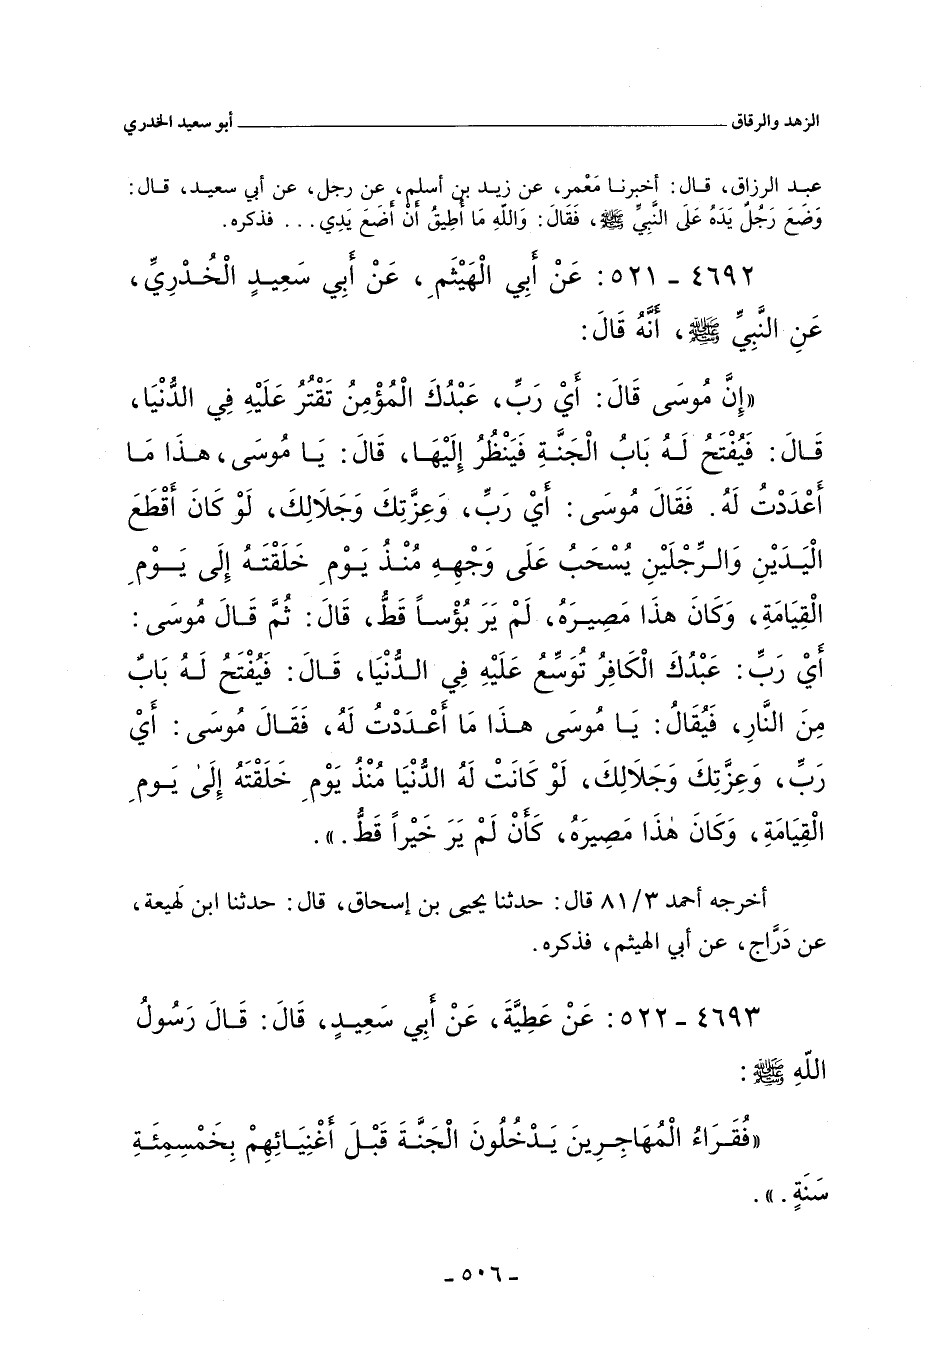 الزهد والرقاق ـــــــــــــــــــــــــــــــــــــــــــ أبو سعيد الخدري
عبد الرزاق، قال: أخبرنا مَعْمر، عن زيد بن أسلم، عن رجل، عن أبي سعيد، قال:
وَضَعَ رَجُلٌ يَدَهُ عَلَى النَّبِيِّ ﷺ، فَقَالَ: وَاللَّهِ مَا أُطِيقُ أَنْ أَضَعَ يَدِي... فذكره.
٤٦٩٢ - ٥٢١: عَنْ أَبِي الْهَيْثَمِ، عَنْ أَبِي سَعِيدٍ الْخُدْرِيِّ،
عَنِ النَّبِيِّ ﷺ، أَنَّهُ قَالَ:
«إِنَّ مُوسَى قَالَ: أَيْ رَبِّ، عَبْدُكَ الْمُؤْمِنُ تَقْتُرُ عَلَيْهِ فِي الدُّنْيَا،
قَالَ: فَيُفْتَحُ لَهُ بَابُ الْجَنَّةِ فَيَنْظُرُ إِلَيْهَا، قَالَ: يَا مُوسَى، هذَا مَا
أَعْدَدْتُ لَهُ. فَقَالَ مُوسَى: أَيْ رَبِّ، وَعِزَّتِكَ وَجَلَالِكَ، لَوْ كَانَ أَقْطَعَ
الْيَدَيْنِ وَالرِّجْلَيْنِ يُسْحَبُ عَلَى وَجْهِهِ مُنْذُ يَوْمِ خَلَقْتَهُ إِلَى يَوْمِ
الْقِيَامَةِ، وَكَانَ هذَا مَصِيرَهُ، لَمْ يَرَ بُؤْساً قَطُّ، قَالَ: ثُمَّ قَالَ مُوسَى:
أَيْ رَبِّ: عَبْدُكَ الْكَافِرُ تُوَسِّعُ عَلَيْهِ فِي الدُّنْيَا، قَالَ: فَيُفْتَحُ لَهُ بَابٌ
مِنَ النَّارِ، فَيُقَالُ: يَا مُوسَى هذَا مَا أَعْدَدْتُ لَهُ، فَقَالَ مُوسَى: أَيْ
رَبِّ، وَعِزَّتِكَ وَجَلَالِكَ، لَوْ كَانَتْ لَهُ الدُّنْيَا مُنْذُ يَوْمِ خَلَقْتَهُ إِلَىٰ يَوْمِ
الْقِيَامَةِ، وَكَانَ هٰذَا مَصِيرَهُ، كَأَنْ لَمْ يَرَ خَيْراً قَطُّ.».
أخرجه أحمد ٨١/٣ قال: حدثنا يحيى بن إسحاق، قال: حدثنا ابن لهيعة،
عن دَرَّاج، عن أبي الهيثم، فذكره.
٤٦٩٣ - ٥٢٢: عَنْ عَطِيَّةَ، عَنْ أَبِي سَعِيدٍ، قَالَ: قَالَ رَسُولُ
اللَّهِ ﷺ:
«فُقَرَاءُ الْمُهَاجِرِينَ يَدْخُلُونَ الْجَنَّةَ قَبْلَ أَغْنِيَائِهِمْ بِخَمْسِمِئَةِ
سَنَةٍ.».
- ٥٠٦ -